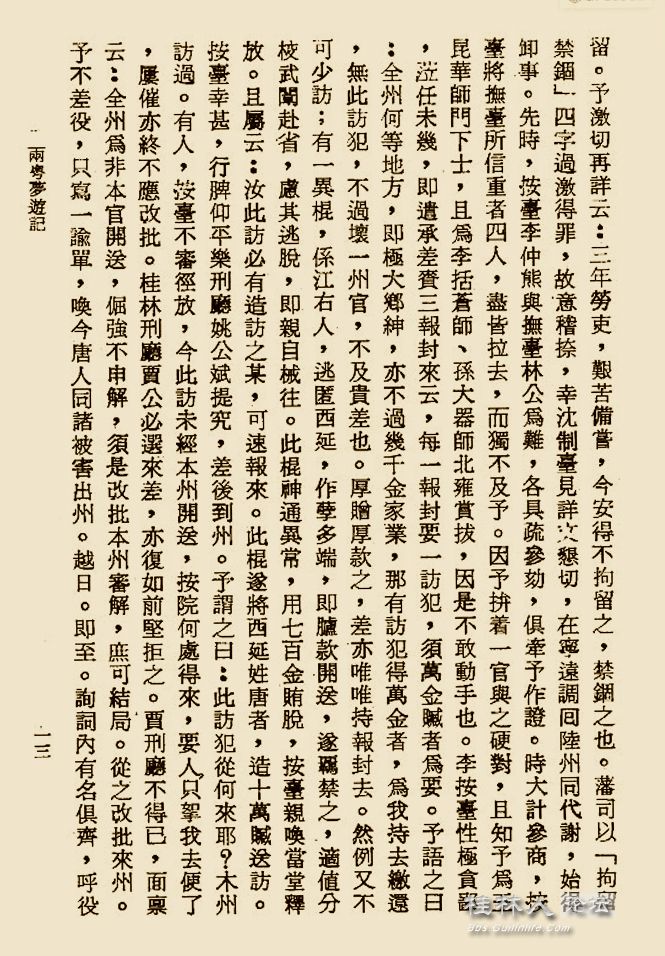 留。予激切再詳云：三年勞吏，艱苦備嘗，今安得不拘留之，禁錮之也。藩司以「拘留
禁錮」四字過激得罪，故意稽捺，幸沈制臺見詳文懇切，在寧遠調回陸州同代謝，始得
卸事。先時，按臺李仲熊與撫臺林公爲難，各具疏參劾，俱牽予作證。時大計參商，按
臺將撫臺所信重者四人，盡皆拉去，而獨不及予。因予拚着一官與之硬對，且知予爲王
昆華師門下士，且爲李括蒼師、孫大器師北雍賞拔，因是不敢動手也。李按臺性極貪鄙
，蒞任未幾，即遣承差賫三報封來云，每一報封要一訪犯，須萬金贓者爲要。予語之曰
：全州何等地方，即極大鄉紳，亦不過幾千金家業，那有訪犯得萬金者，爲我持去繳還
，無此訪犯，不過壞一州官，不及貴差也。厚贈厚款之，差亦唯唯持報封去。然例又不
可少訪；有一異棍，係江右人，逃匿西延，作孽多端，即臚款開送，遂羈禁之，適值分
校武闈赴省，慮其逃脫，即親自械往。此棍神通異常，用七百金賄脫，按臺親喚當堂釋
放。且屬云：汝此訪必有造訪之某，可速報來。此棍遂將西延姓唐者，造十萬贓送訪。
按臺幸甚，行牌仰平樂刑廳姚公斌提究，差後到州。予謂之曰：此訪犯從何來耶？木州
訪過。有人，按臺不審徑放，今此訪未經本州開送，按院何處得來，要人，只拏我去便了
，屢催亦終不應改批。桂林刑廳賈公必選來差，亦復如前堅拒之。賈刑廳不得已，面稟
云：全州爲非本官開送，倔強不申解，須是改批本州審解，庶可結局。從之改批來州。
予不差役，只寫一諭單，喚今唐人同諸被害出州。越日。即至。詢詞內有名俱齊，呼役
兩粵夢遊記
一三
桂林人论坛
bbs.Guilinlife.com